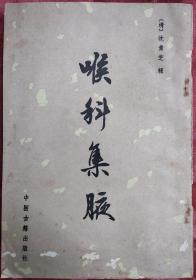 〔清〕沈青芝 辑
喉科集腋
中医古籍出版社